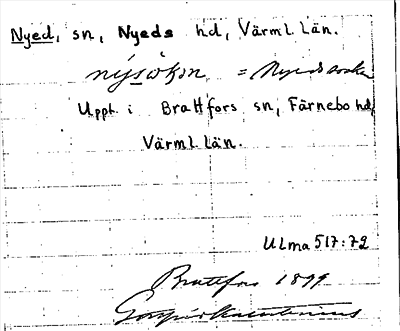 Nyed, sn, Nyeds hd, Värml. Län.
nýsòkən = Nyedssocken
Uppt. i Brattfors sn, Färnebo hd,
Värml. Län.
ULma 517:72
Brattfors 1899